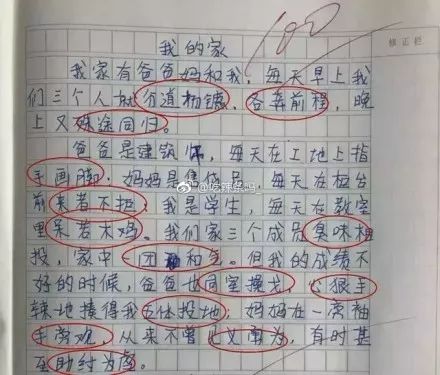 我的家
100
修正栏
我家有爸爸妈和我，每天早上我
们三个人就分道杨镳、各奔前程，晚
上又殊途同归。
爸爸是建筑师，每天在工地上指
手画脚，妈妈是售货员，每天在柜台
前来者不拒，我是学生，每天在教室
里呆若木鸡。我们家三个成员臭味相
投，家中一团和气。但我的成绩不
好的时候，爸爸也同室操戈，心狠手
辣地揍得我五体投地，妈妈在一旁袖
手旁观，从来不曾见义勇为，有时甚
至助纣为虐。